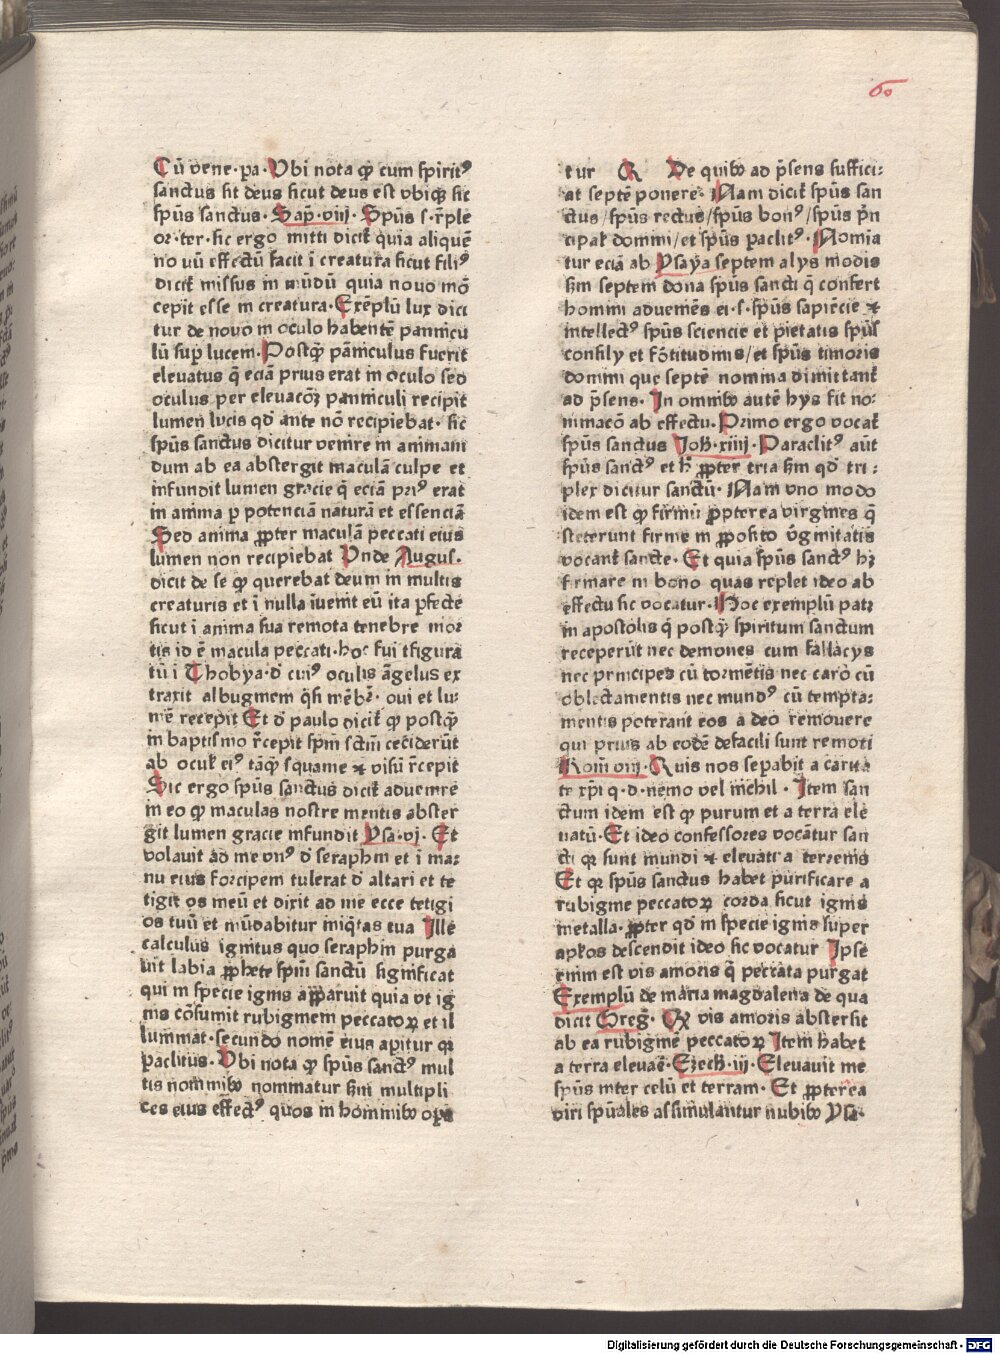 60
Cū vene·pa·Vbi nota ꝙ cum spiritꝰ
sanctus sit deus sicut deus est vbiqꝫ sic
spūs sanctus·Sap̄·viij·Spūs s·r̄ple
or·ter·sic ergo mitti dicit̄ quia aliquē
no uū effectū facit ī creatura sicut filiꝰ
dicit̄ missus in mūdū quia nouo mō
cepit esse in creatura·Exēplū lux dici
tur de nouo in oculo habentē pannicu
lū sup̱ lucem·Postqꝫ̄ pāniculus fuerit
eleuatus q̄ eciā prius erat in oculo sed
oculus per eleuacōꝫ panniculi recipit
lumen lucis qd̄ ante nō recipiebat·sic
spūs sanctus dicitur venire in animam
dum ab ea abstergit maculā culpe et
infundit lumen gracie q̄ eciā priꝰ erat
in anima p̱ potenciā naturā et essenciā
Sed anima ꝓpter maculā peccati eius
lumen non recipiebat Vnde Augus·
dicit de se ꝙ querebat deum in multis
creaturis et ī nulla īuenit eū ita p̱fecte
sicut ī anima sua remota tenebre mor
tis id ē macula peccati·hoc fui tfigura
tū ī Thobya·d̓ cuiꝰ oculis āgelus ex
traxit albuginem q̄si mēbꝛ̄· oui et lu⸗
mē recepit Et d̓ paulo dicit̄ ꝙ postqꝫ̄
in baptismo r̄cepit spm̄ sctm̄ ceciderūt
ab ocul̄ eiꝰ tāqꝫ̄ squame ⁊ visū r̄cepit
Sic ergo spūs sanctus dicit̄ aduenire
in eo ꝙ maculas nostre mentis abster
git lumen gracie infundit Ysa·vj· Et
volauit ad me vnꝰ d̓ seraphin et ī ma⸗
nu eius forcipem tulerat d̓ altari et te
tigit os meū et dixit ad me ecce tetigi
os tuū et mūdabitur iniq̄tas tua Ille
calculus ignitus quo seraphin purga
uit labia ꝓphete spm̄ sanctū significat
qui in specie ignis apparuit quia vt ig
nis cōsumit rubiginem peccatoꝝ et il
luminat·secundo nomē eius apitur qꝛ
paclitus· Vbi nota ꝙ spūs sanctꝰ mul
tis nominibꝰ nominatur sm̄ multipli
ces eius effectꝰ quos in hominibꝰ opa
tur De quibꝰ ad p̄sens suffici⸗
at septē ponere· Nam dicit̄ spūs san
ctus/spūs rectus/spūs bonꝰ/spūs p̄n
cipal̄ domini/et spūs paclitꝰ·Nomīa
tur eciā ab Ysaya septem alys modis
sm̄ septem dona spūs sancti q̄ confert
homini adueniēs ei·s·spūs sapiēcie ⁊
intellectꝰ spūs sciencie et pietatis spūs
consily et fōtitudinis/et spūs timoris
domini que septē nomina dimittant̄
ad p̄sens· In omnibꝰ autē hys fit no⸗
minacō ab effectu·Primo ergo vocat̄
spūs sanctus Joh·xiiij·Paraclitꝰ aūt
spūs sanctꝰ et h̄ ꝓpter tria sm̄ qd̄ tri⸗
plex dicitur sanctū· Nam vno modo
idem est ꝙ firmū ꝓpterea virgines q̄
steterunt firme in ꝓposito v̓ginitatis
vocant̄ sancte· Et quia spūs sanctꝰ hꝫ
firmare in bono quas replet ideo ab
effectu sic vocatur·Hoc exemplū patꝫ
in apostolis q̄ postqꝫ̄ spiritum sanctum
receperūt nec demones cum fallacys
nec principes cū tormētis nec caro cū
oblectamentis nec mundꝰ cū tempta⸗
mentis poterant eos a deo remouere
qui prius ab eodē defacili sunt remoti
Rom̄ viij·Quis nos sepabit a carita
te xp̄i q·d·nemo vel nichil · Item san
ctum idem est ꝙ purum et a terra ele
uatū·Et ideo confessores vocātur san
cti qꝛ sunt mundi ⁊ eleuati a terrenis
Et qꝛ spūs sanctus habet purificare a
rubigine peccatoꝝ corda sicut ignis
metalla·ꝓpter qd̄ in specie ignis super
apl̄os descendit ideo sic vocatur Ipse
enim est vis amoris q̄ peccata purgat
Exemplū de maria magdalena de qua
dicit Greḡ· vis amoris abstersit
ab ea rubiginē peccatoꝝ Item habet
a terra eleuare·Ezech·iij·Eleuauit me
spūs inter celū et terram·Et ꝓpterea
viri spūales assimulantur nubibꝰ Ysa·
Digitalisierung gefördert durch die Deutsche Forschungsgemeinschaft - DFG